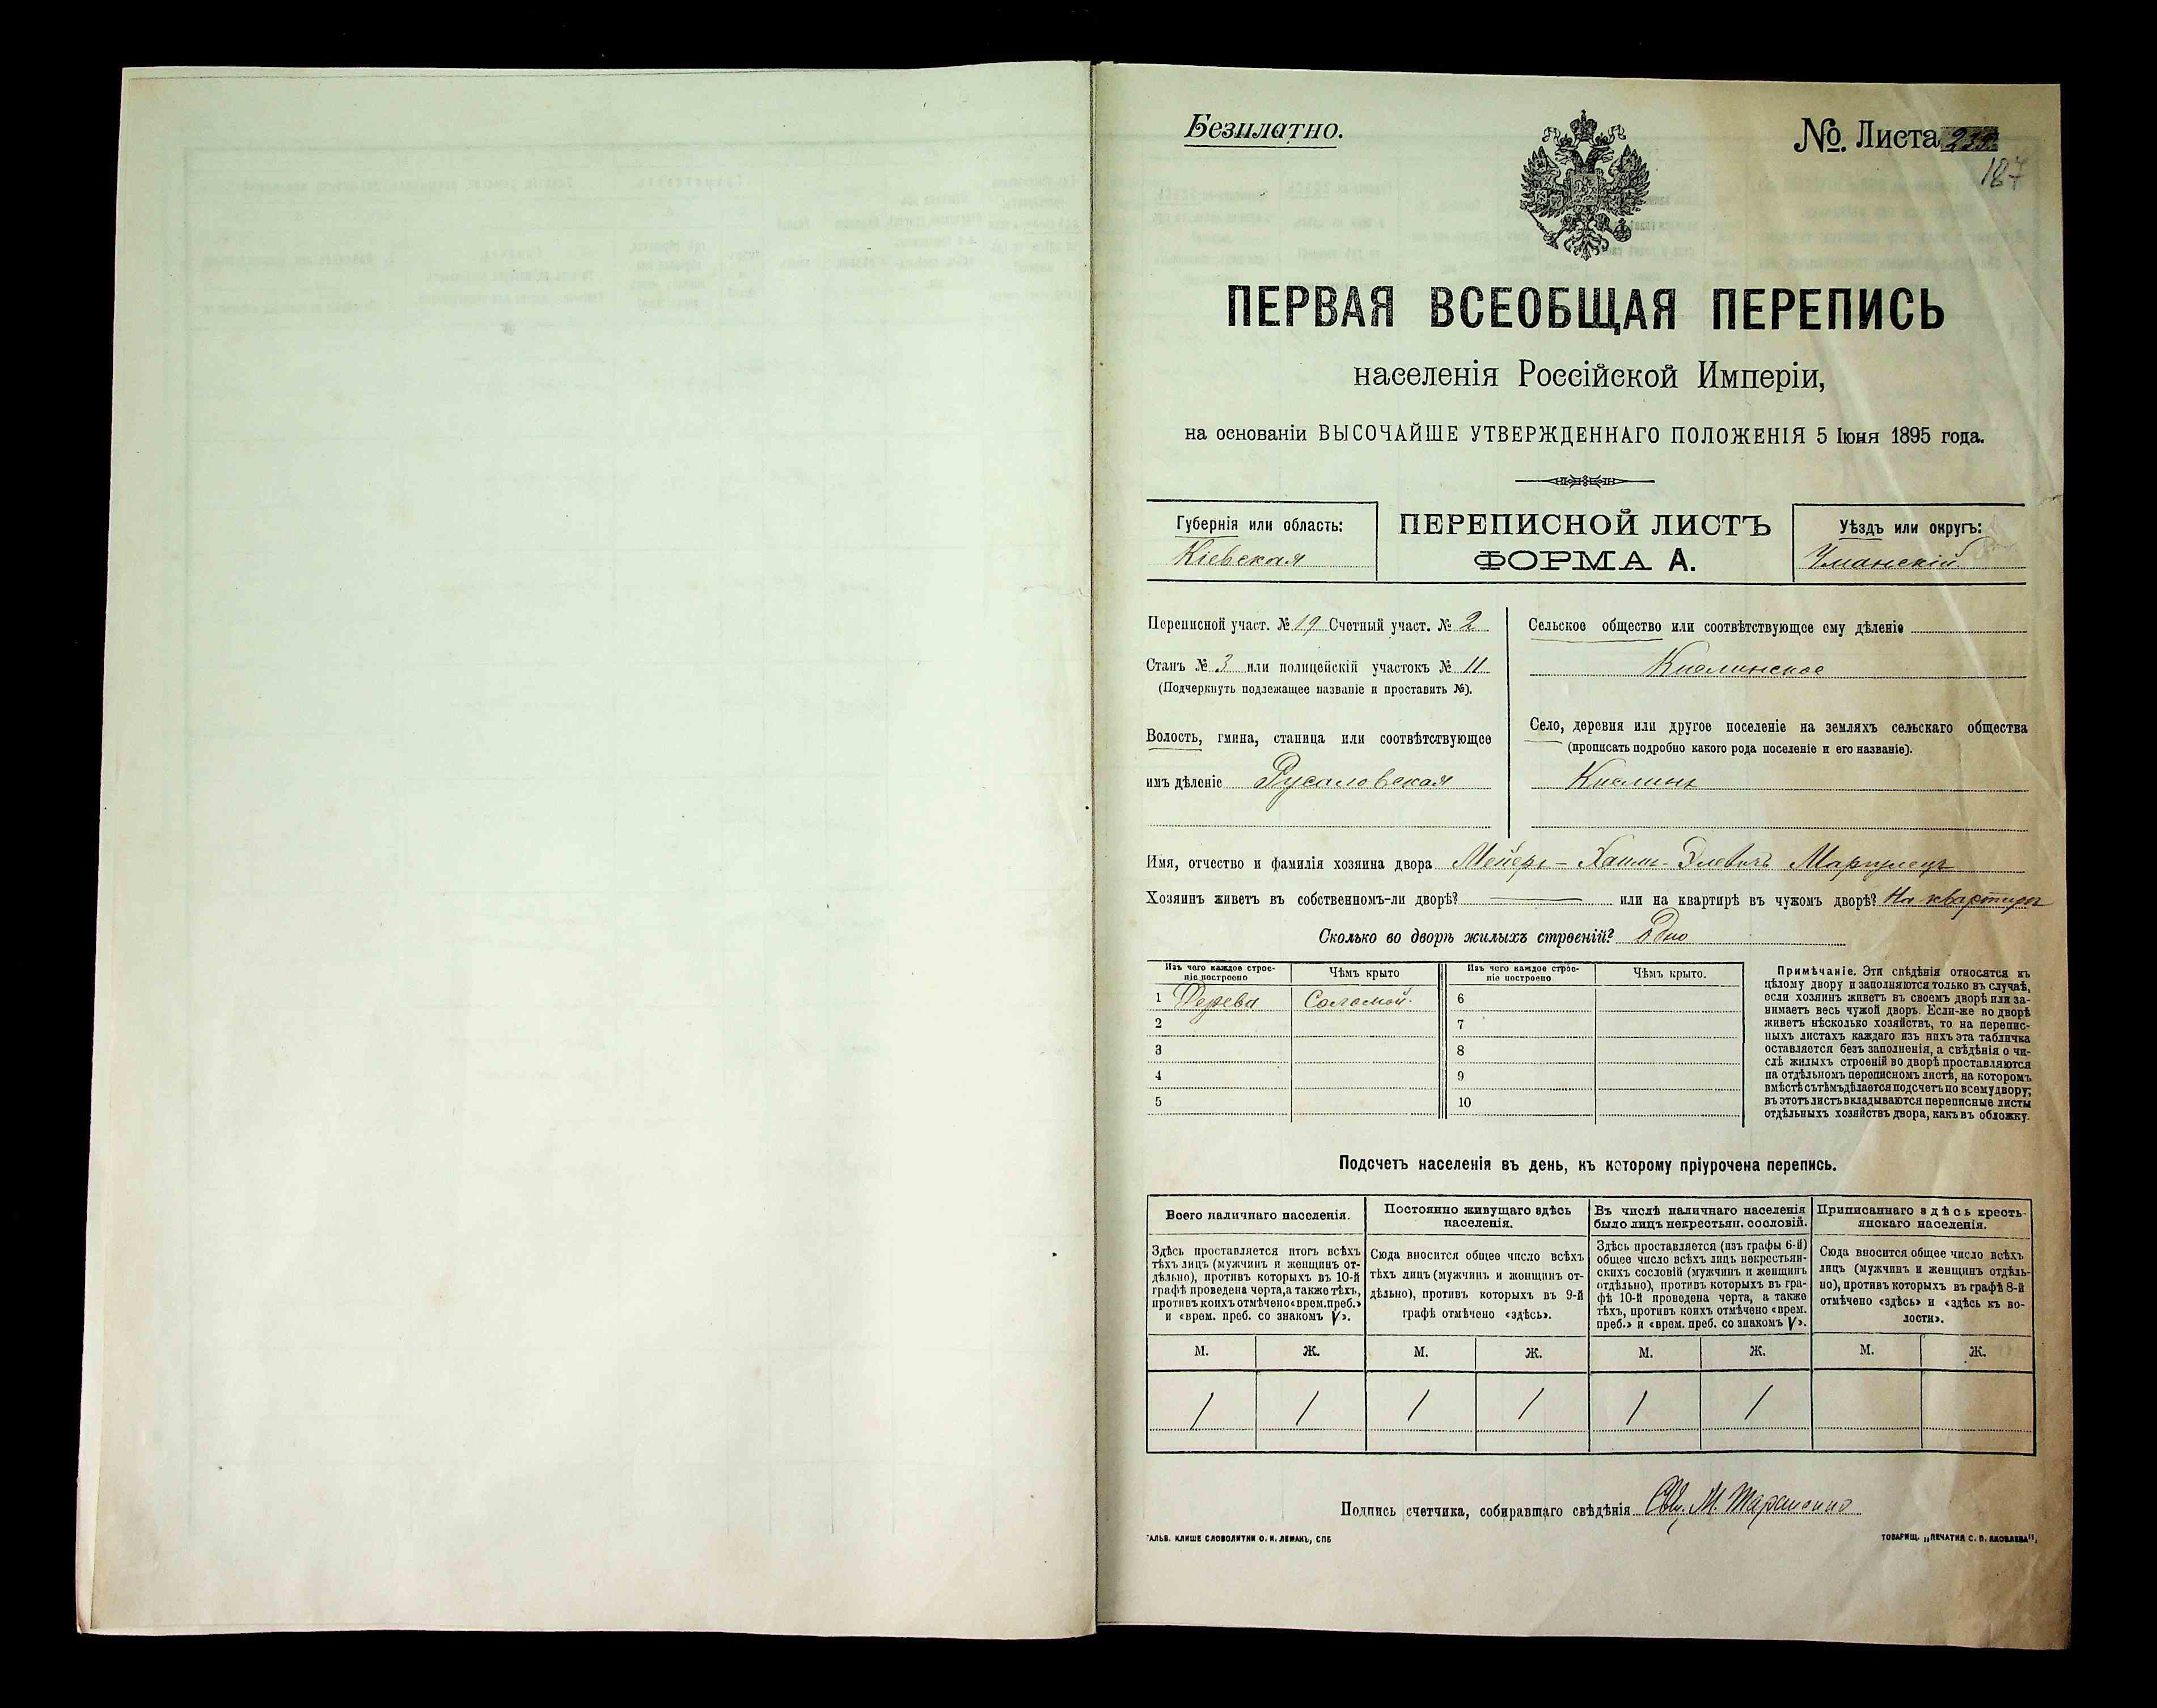 Безплатно.
№. Листа
187
ПЕРВАЯ ВСЕОБЩАЯ ПЕРЕПИСЬ
населенія Россійской Имперіи,
на основаніи ВЫСОЧАЙШЕ УТВЕРЖДЕННАГО ПОЛОЖЕНІЯ 5 Іюня 1895 года.
Губернія или область:
Кіевская
ПЕРЕПИСНОЙ ЛИСТЪ
ФОРМА А.
Уѣздъ или округъ:
Уманскій
Переписной участ. № 19 Счетный участ. № 2
Станъ № 3 или полицейскій участокъ № 11
(Подчеркнуть подлежащее названіе и проставить №).
Волость, гмина, станица или соотвѣтствующее
имъ дѣленіе Русаловская
Сельское общество или соотвѣтствующее ему дѣленіе
Кислинское
Село, деревня или другое поселеніе на земляхъ сельскаго общества
(прописать подробно какого рода поселеніе и его названіе).
Кислинъ
Имя, отчество и фамилія хозяина двора Мейеръ-Хаимъ-
Хозяинъ живетъ въ собственномъ-ли дворѣ? — или на квартирѣ въ чужомъ дворѣ? На квартирѣ
Сколько во дворѣ жилыхъ строеній? Одно
Изъ чего каждое строе-
ніе построено
Чѣмъ крыто
Изъ чего каждое строе-
ніе построено
Чѣмъ крыто.
1 Дерева Соломой. 6
2 7
3 8
4 9
5 10
Примѣчаніе. Эти свѣдѣнія относятся къ
цѣлому двору и заполняются только въ случаѣ,
если хозяинъ живетъ въ своемъ дворѣ или за-
нимаетъ весь чужой дворъ. Если-же во дворѣ
живетъ нѣсколько хозяйствъ, то на перепис-
ныхъ листахъ каждаго изъ нихъ эта табличка
оставляется безъ заполненія, а свѣдѣнія о чи-
слѣ жилыхъ строеній во дворѣ проставляются
на отдѣльномъ переписномъ листѣ, на которомъ
вмѣстѣ съ тѣмъ дѣлается подсчетъ по всему двору;
въ этотъ листъ вкладываются переписные листы
отдѣльныхъ хозяйствъ двора, какъ въ обложку.
Подсчетъ населенія въ день, къ которому пріурочена перепись.
Всего наличнаго населенія.
Здѣсь проставляется итогъ всѣхъ
тѣхъ лицъ (мужчинъ и женщинъ от-
дѣльно), противъ которыхъ въ 10-й
графѣ проведена черта, а также тѣхъ,
противъ коихъ отмѣчено «врем. преб.»
и «врем. преб. со знакомъ V».
Постоянно живущаго здѣсь
населенія.
Сюда вносится общее число всѣхъ
тѣхъ лицъ (мужчинъ и женщинъ от-
дѣльно), противъ которыхъ въ 9-й
графѣ отмѣчено «здѣсь».
Въ числѣ наличнаго населенія
было лицъ некрестьян. сословій.
Здѣсь проставляется (изъ графы 6-й)
общее число всѣхъ лицъ некрестьян-
скихъ сословій (мужчинъ и женщинъ
отдѣльно), противъ которыхъ въ гра-
фѣ 10-й проведена черта, а также
тѣхъ, противъ коихъ отмѣчено «врем.
преб.» и «врем. преб. со знакомъ V».
Приписаннаго здѣсь кресть-
янскаго населенія.
Сюда вносится общее число всѣхъ
лицъ (мужчинъ и женщинъ отдѣль-
но), противъ которыхъ въ графѣ 8-й
отмѣчено «здѣсь» и «здѣсь къ во-
лости».
М. Ж. М. Ж. М. Ж. М. Ж.
1 1 1 1 1 1
Подпись счетчика, собиравшаго свѣдѣнія Свщ. М. Тараненко
ГАЛЬВ. КЛИШЕ СЛОВОЛИТНИ О. И. ЛЕМАНЪ, СПБ
ТОВАРИЩ. „ПЕЧАТНЯ С. П. ЯКОВЛЕВА“,